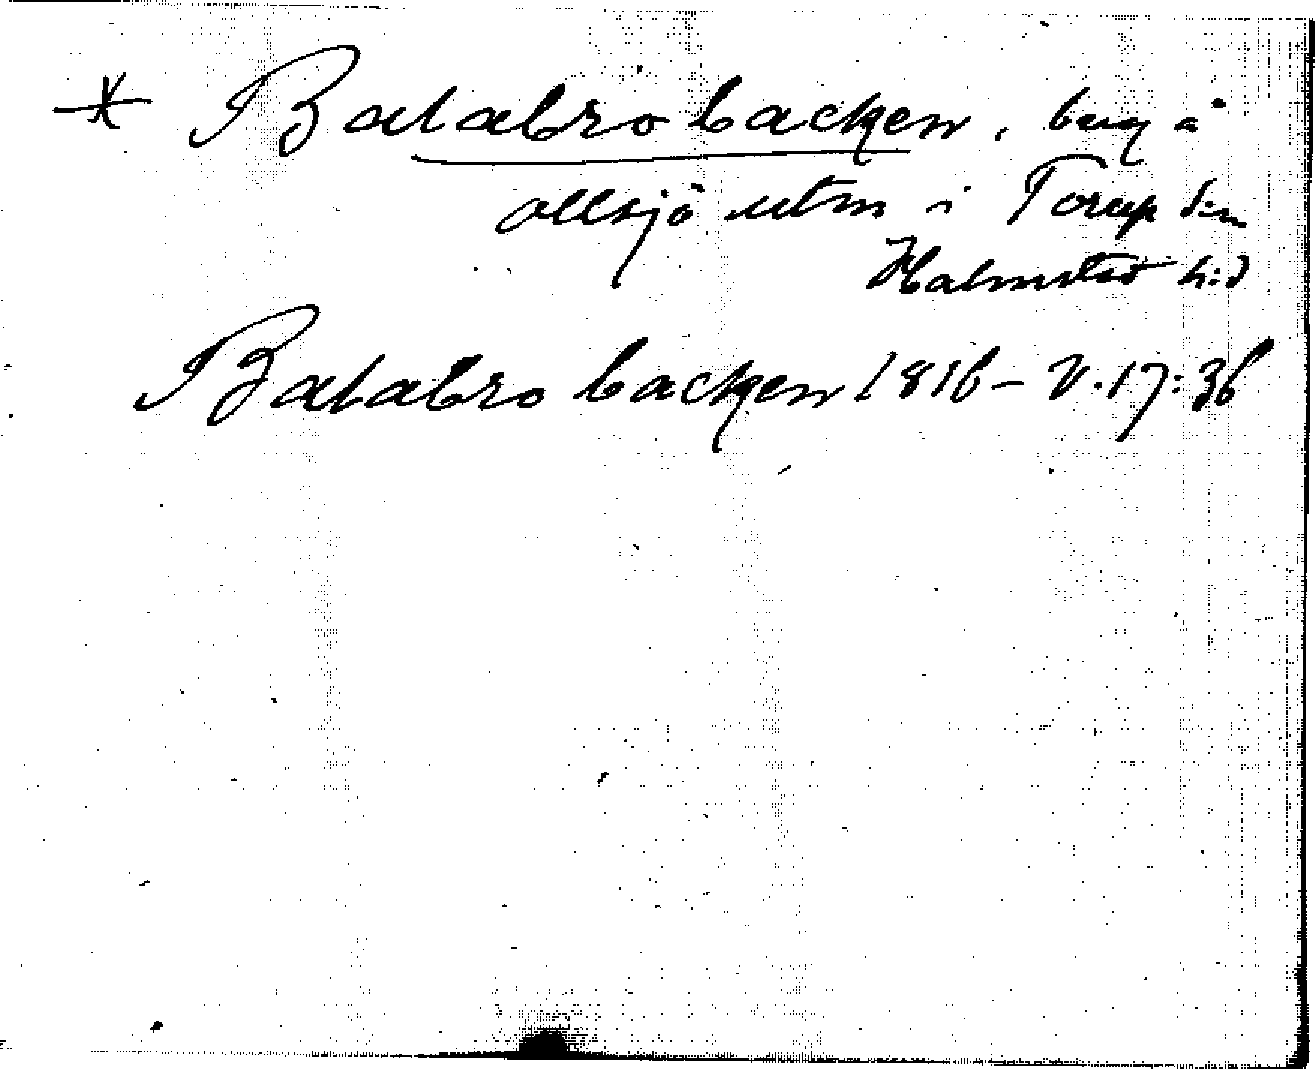 * Batabrobacken, berg å
allsjö utm i Torup sn
Halmstad h:d
Batabrobacken 1816 – V. 17:36